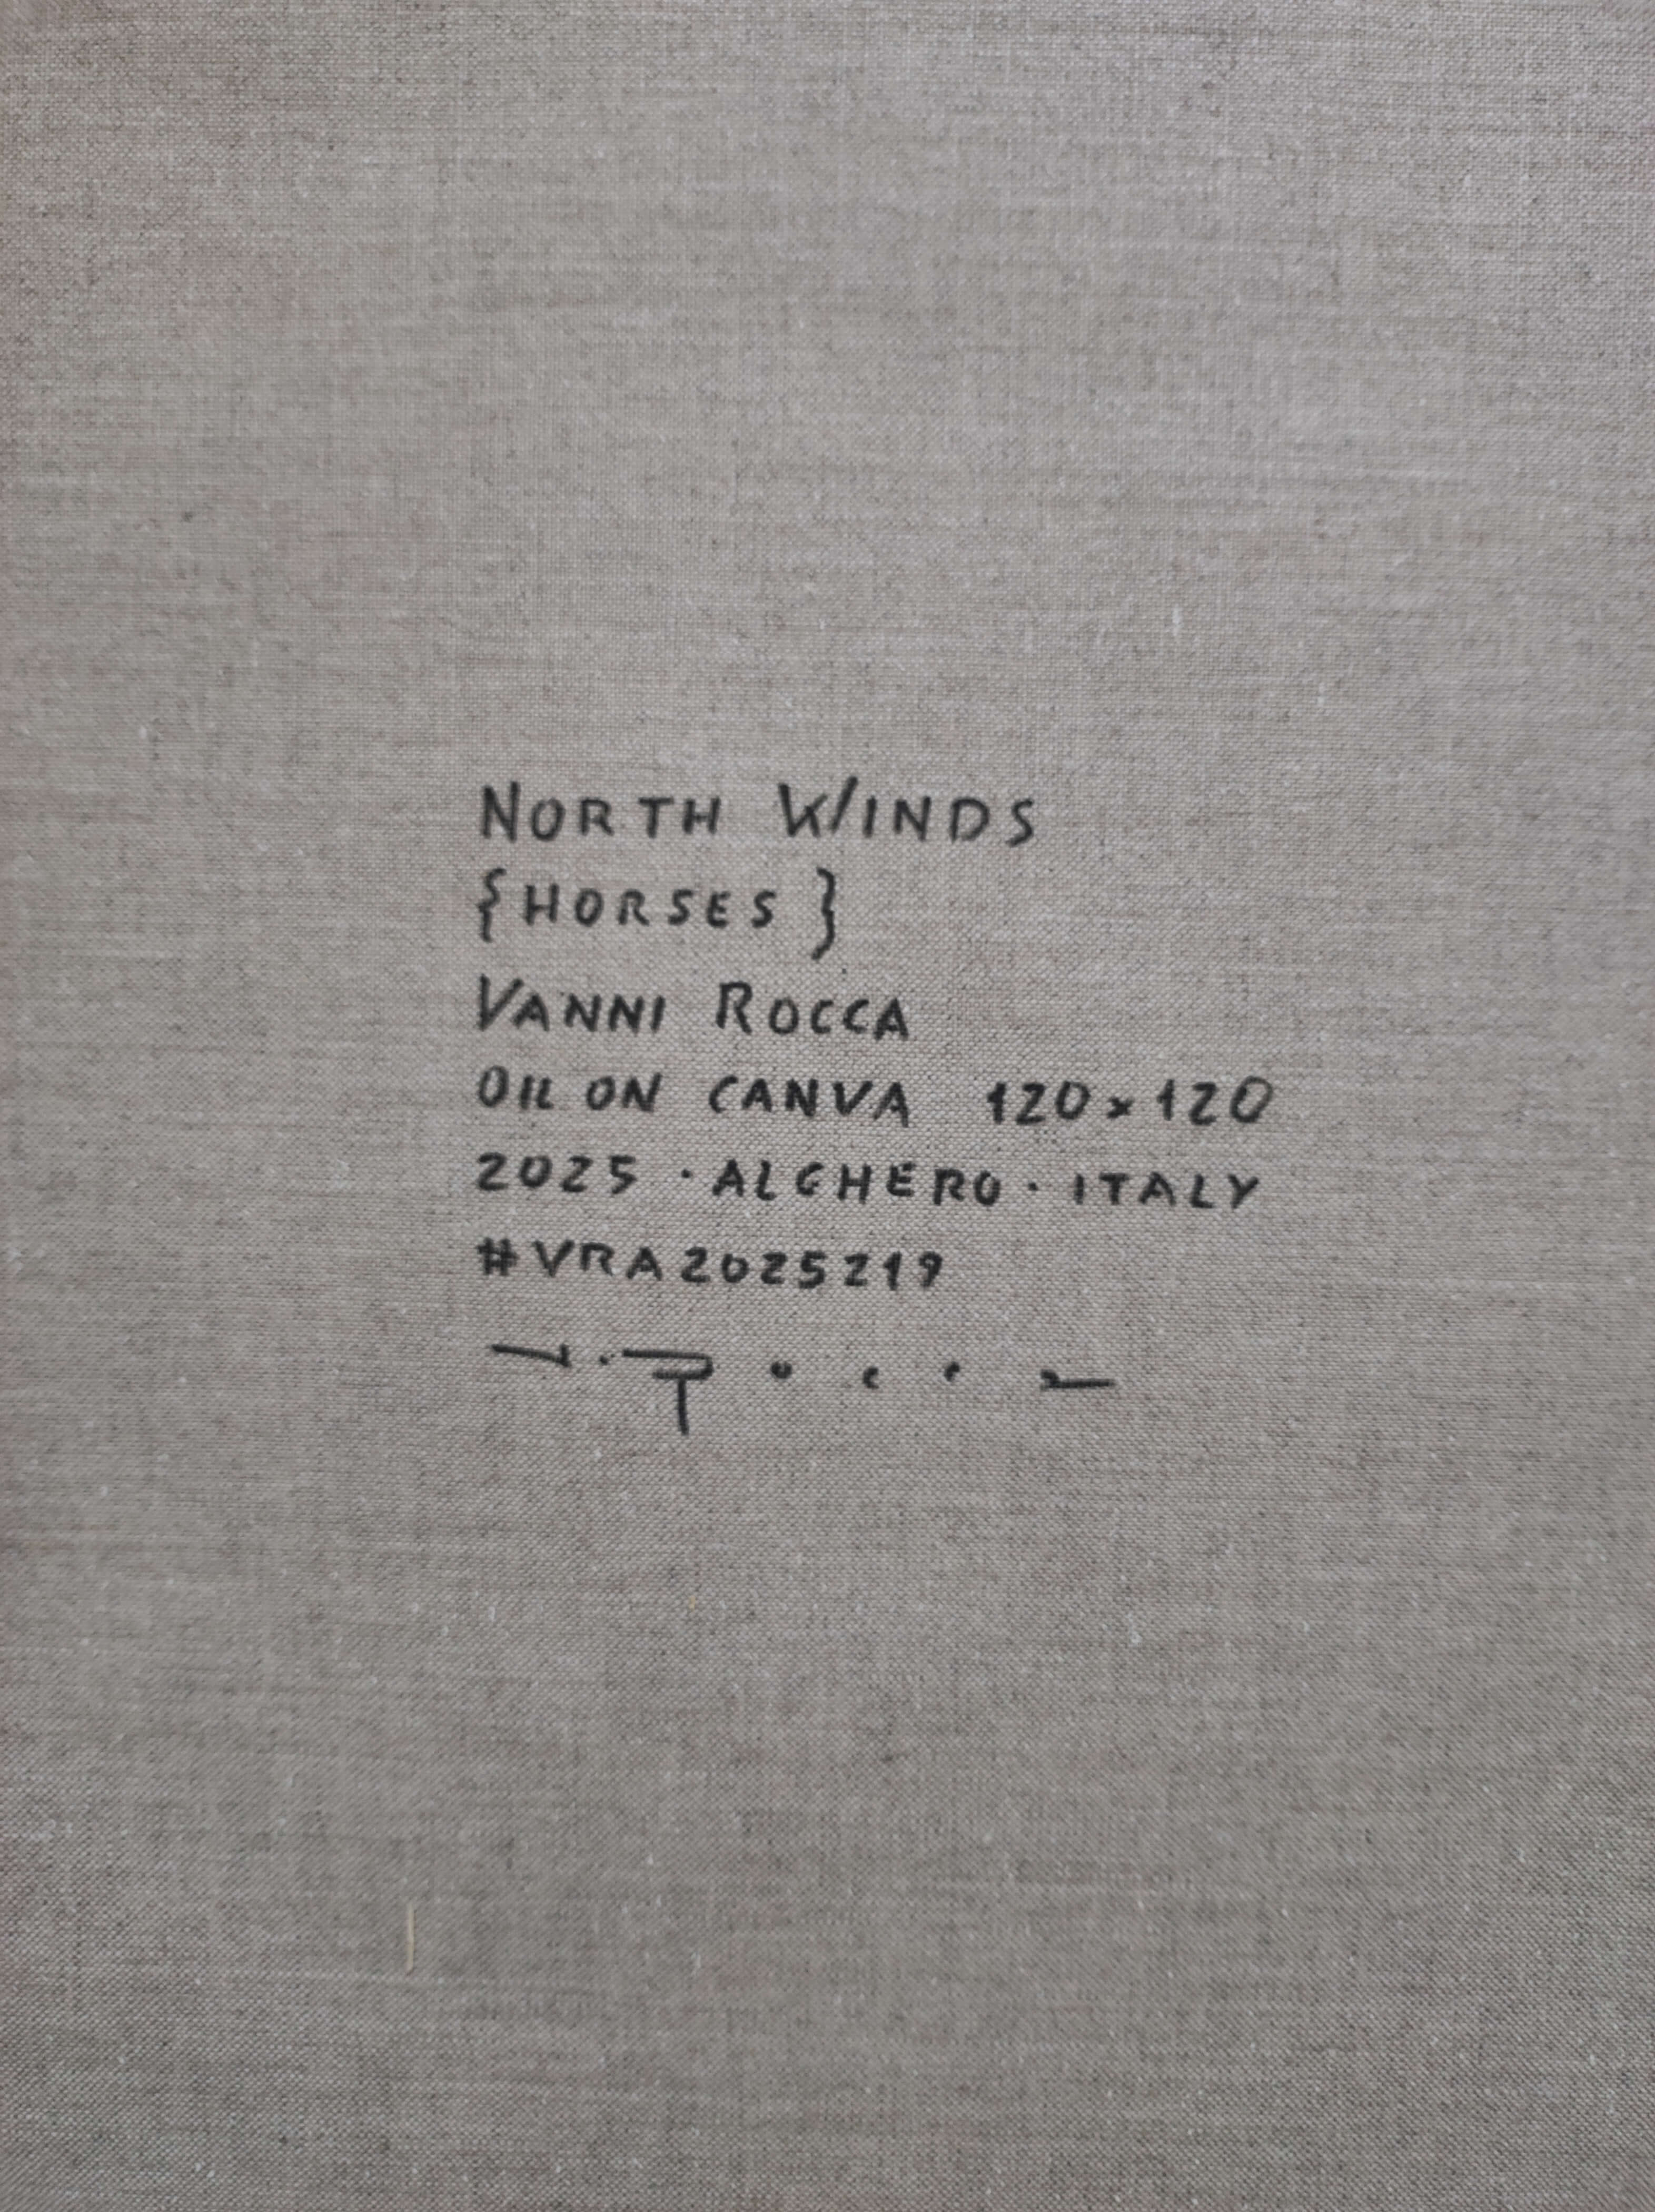 NORTH WINDS
{HORSES}
VANNI ROCCA
OIL ON CANVA 120x120
2025 · ALGHERO · ITALY
#VRA2025219
V. Rocca